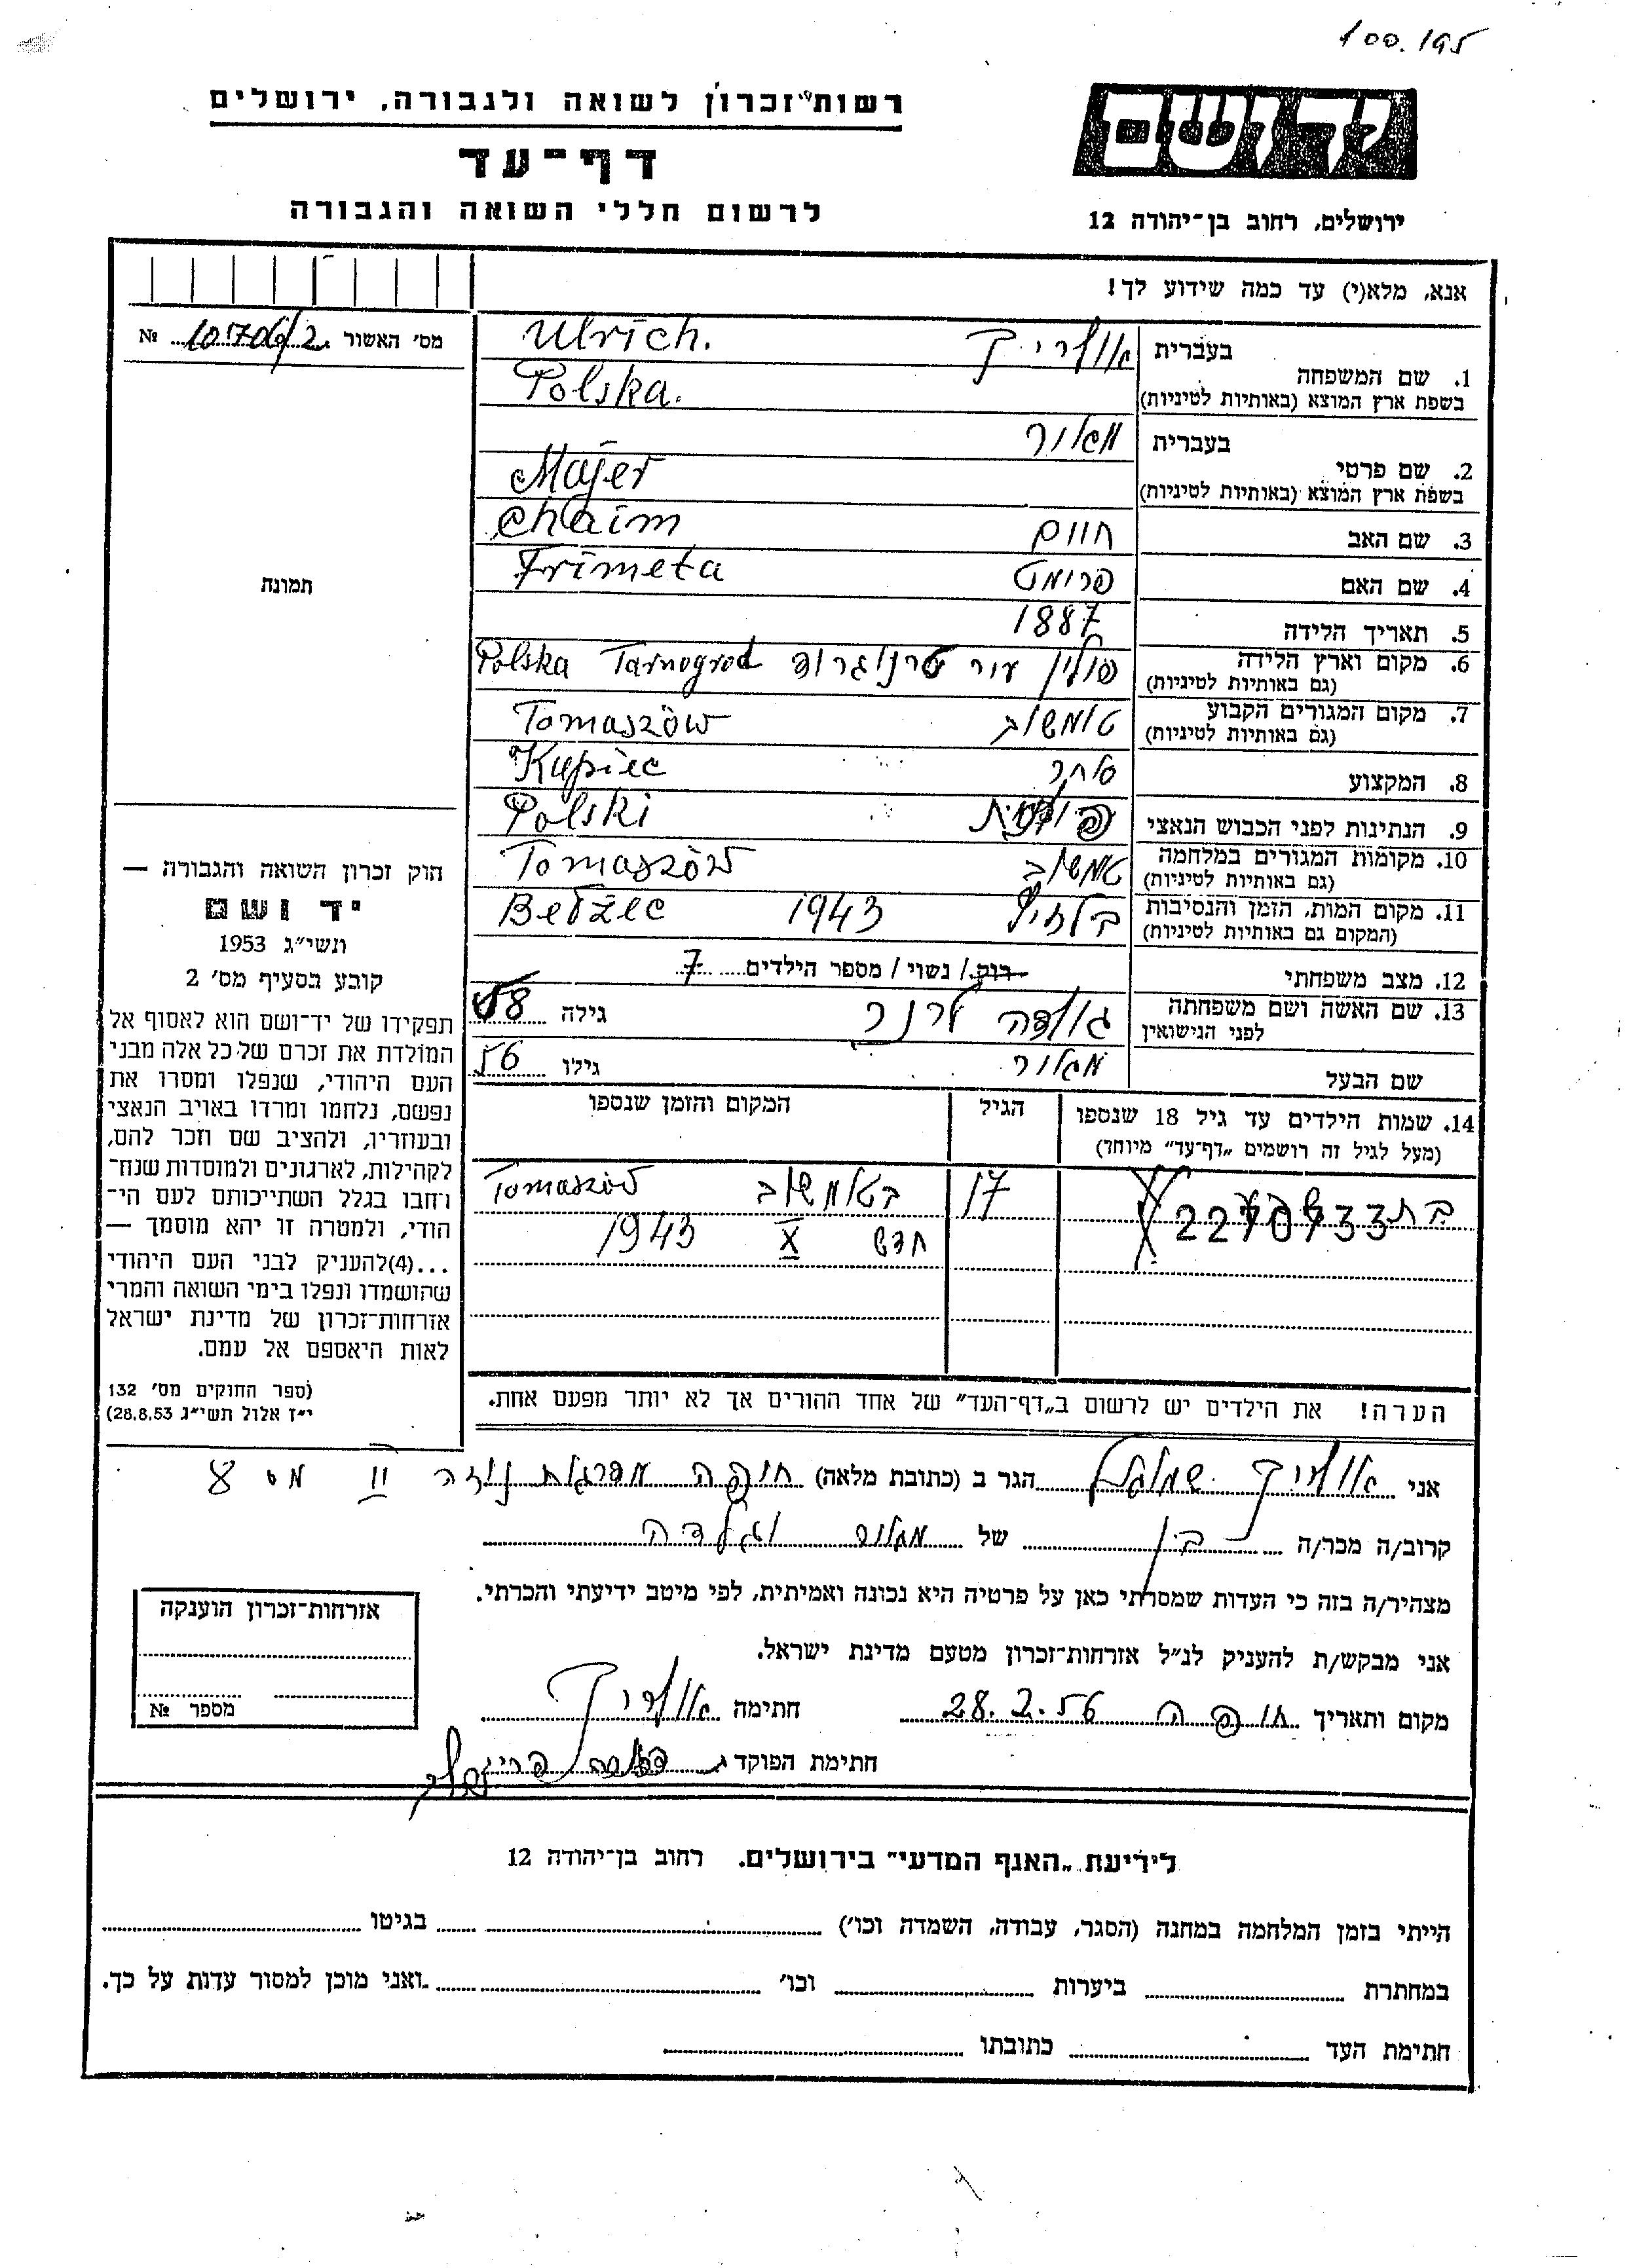 100.195
רשות־זכרון לשואה ולגבורה, ירושלים
דף־עד
לרשום חללי השואה והגבורה
יד ושם
ירושלים, רחוב בן־יהודה 12
אנא, מלא(י) עד כמה שידוע לך!
מס׳ האשור 10706/2 №
תמונה
חוק זכרון השואה והגבורה —
יד ושם
תשי״ג 1953
קובע בסעיף מס׳ 2
תפקידו של יד־ושם הוא לאסוף אל
המולדת את זכרם של כל אלה מבני
העם היהודי, שנפלו ומסרו את
נפשם, נלחמו ומרדו באויב הנאצי
ובעוזריו, ולהציב שם וזכר להם,
לקהילות, לארגונים ולמוסדות שנח־
רחבו בגלל השתייכותם לעם הי־
הודי, ולמטרה זו יהא מוסמך —
...(4)להעניק לבני העם היהודי
שהושמדו ונפלו בימי השואה והמרי
אזרחות־זכרון של מדינת ישראל
לאות היאספם אל עמם.
(ספר החוקים מס׳ 132
י״ז אלול תשי״ג 28.8.53)
בעברית אולריך Ulrich.
1. שם המשפחה
בשפת ארץ המוצא (באותיות לטיניות) Polska.
בעברית מאור
2. שם פרטי
בשפת ארץ המוצא (באותיות לטיניות) Majer
3. שם האב חיים Chaim
4. שם האם פרימט Frimeta
5. תאריך הלידה 1887
6. מקום וארץ הלידה פולין עיר טרנוגרוד Polska Tarnogrod
(גם באותיות לטיניות)
7. מקום המגורים הקבוע טומשוב Tomaszów
(גם באותיות לטיניות)
8. המקצוע סוחר Kupiec
9. הנתינות לפני הכבוש הנאצי פולנית Polski
10. מקומות המגורים במלחמה טומשוב Tomaszów
(גם באותיות לטיניות)
11. מקום המות, הזמן והנסיבות 1943 Bełżec
(המקום גם באותיות לטיניות)
12. מצב משפחתי רווק / נשוי / מספר הילדים 7
13. שם האשה ושם משפחתה גולדה לרנר גילה 58
לפני הנישואין
שם הבעל מאיור גילו 56
14. שמות הילדים עד גיל 18 שנספו הגיל המקום והזמן שנספו
(מעל לגיל זה רושמים „דף־עד״ מיוחד)
בת 2270733 17 בטומשוב Tomaszów
חדש X 1943
הערה! את הילדים יש לרשום ב„דף־העד״ של אחד ההורים אך לא יותר מפעם אחת.
אני אולריך שמואל הגר ב (כתובת מלאה) חיפה II מס 8
קרוב/ה מכר/ה בן של מאיור וגולדה
מצהיר/ה בזה כי העדות שמסרתי כאן על פרטיה היא נכונה ואמיתית, לפי מיטב ידיעתי והכרתי.
אני מבקש/ת להעניק לנ״ל אזרחות־זכרון מטעם מדינת ישראל.
מקום ותאריך חיפה 28.2.56 חתימה אולריך
חתימת הפוקד
אזרחות־זכרון הוענקה
מספר №
לידיעת „האגף המדעי״ בירושלים. רחוב בן־יהודה 12
הייתי בזמן המלחמה במחנה (הסגר, עבודה, השמדה וכו׳) בגיטו
במחתרת ביערות וכו׳ ואני מוכן למסור עדות על כך.
חתימת העד כתובתו